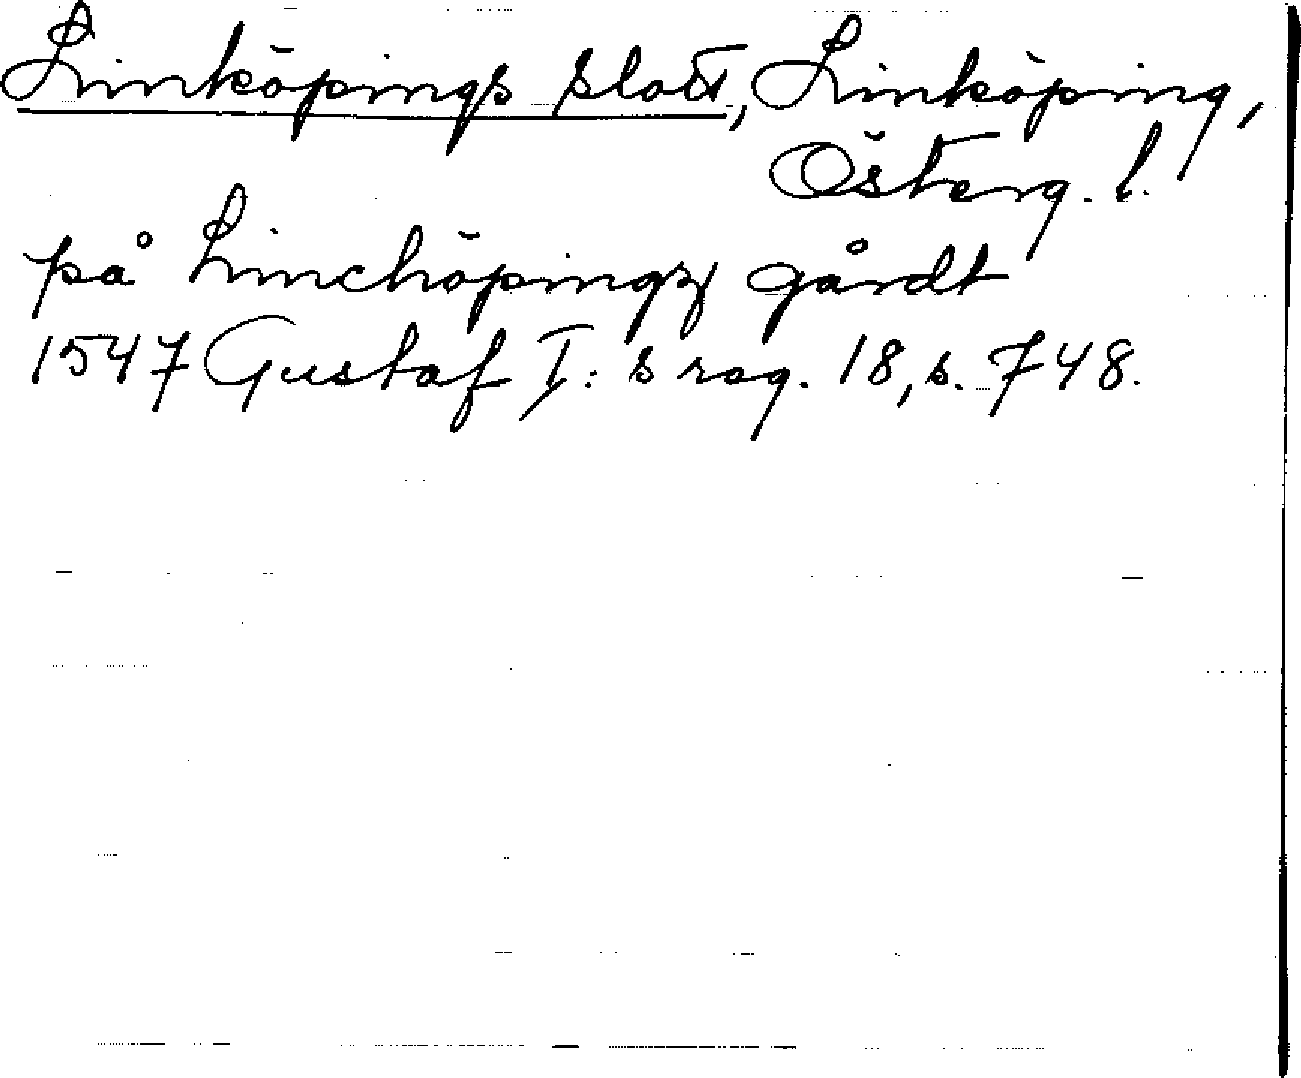 Linköpings slott, Linköping,
Österg. l.
på Linchöpingz gårdt
1547 Gustaf I: s reg. 18, s. 748.